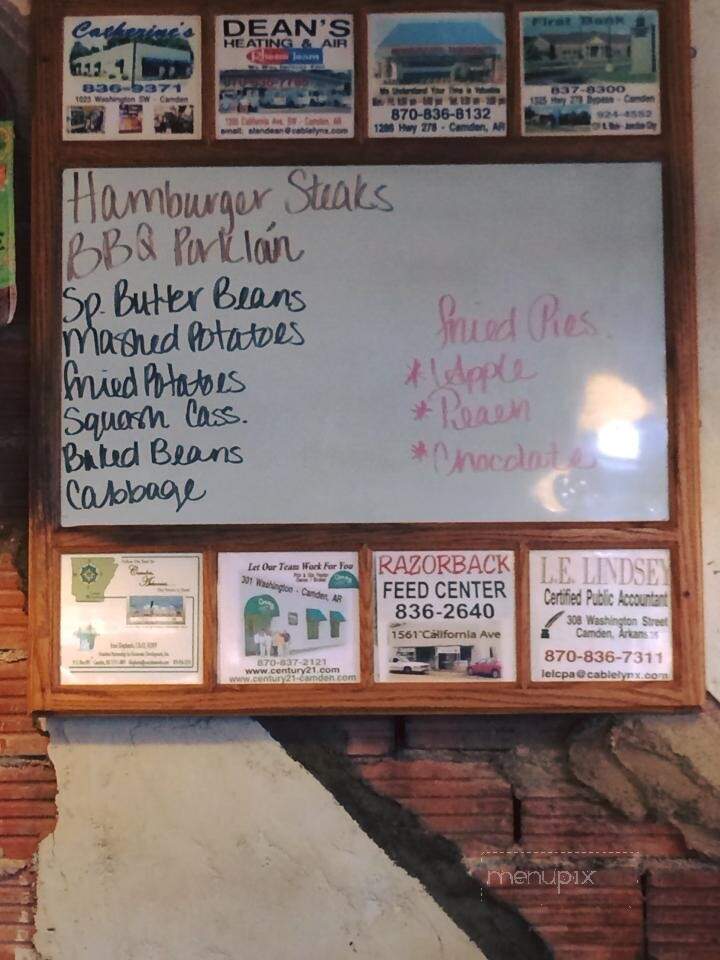 Catherine's
836-9371
1023 Washington SW - Camden
DEAN'S
HEATING & AIR
Rheem Team
1205 California Ave. SW - Camden, AR
email: slandean@cablelynx.com
We Understand Your Time is Valuable
870-836-8132
1286 Hwy 278 - Camden, AR
First Bank
837-8300
1325 Hwy 278 Bypass - Camden
924-4552
Hamburger Steaks
BBQ Porkloin
Sp. Butter Beans
Mashed Potatoes
Fried Potatoes
Squash Cass.
Baked Beans
Cabbage
Fried Pies
*Apple
*Peach
*Chocolate
Camden,
Arkansas
Let Our Team Work For You
301 Washington - Camden, AR
870-837-2121
www.century21.com
www.century21-camden.com
RAZORBACK
FEED CENTER
836-2640
1561 California Ave
L.E. LINDSEY
Certified Public Accountant
308 Washington Street
Camden, Arkansas
870-836-7311
lelcpa@cablelynx.com
menupix